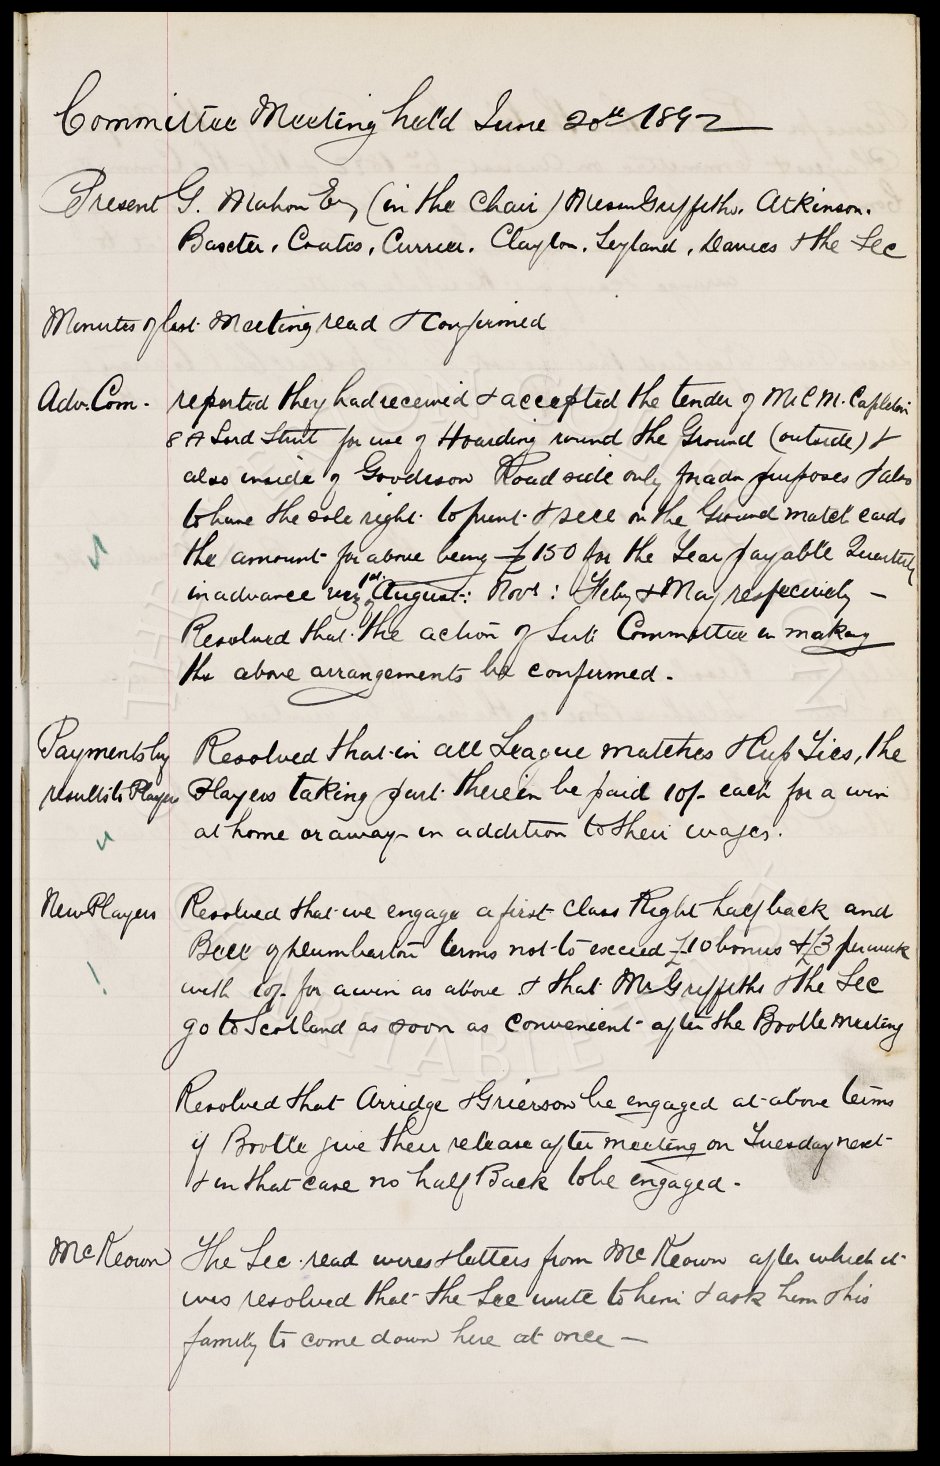 Committee Meeting held June 20th 1892
Present G. Mahon Esq (in the Chair) Messrs Griffiths. Atkinson.
Baxter, Coates, Currier. Clayton. Leyland, Davies & the Sec
Minutes of last Meeting read & Confirmed
Adv. Com. - reported they had received & accepted the tender of Mr C M.
8A Lord Street for use of Hoarding round the Ground (outside) &
also inside of Goodison Road side only for adv purposes & also
to have the sole right to print & sell on the Ground match cards
the amount for above being £150 for the Year payable Quarterly
in advance viz 1st of August: Novr: Feby & May respecively -
Resolved that the action of Sub Committee in making
the above arrangements be confirmed.
Payments by Resolved that in all League matches & Cup Ties, the
results to Players Players taking part therein be paid 10/- each for a win
at home or away in addition to their wages.
New Players Resolved that we engage a first class Right half back and
Bell of Dumbarton terms not to exceed £10 bonus & £3 per week
with 10/- for a win as above & that Mr Griffiths & the Sec
go to Scotland as soon as convenient after the Bootle meeting
Resolved that Arridge & Grierson be engaged at above terms
if Bootle give their release after meeting on Tuesday next
& in that case no half Back to be engaged.
McKeown The Sec. read wires & letters from McKeown after which it
was resolved that the Sec write to him & ask him & his
family to come down here at once -